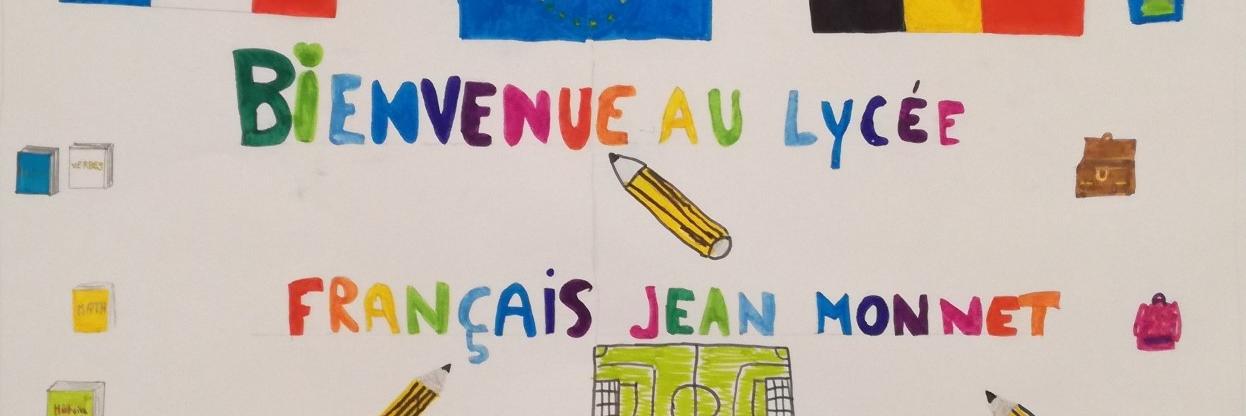 BiENVENUE AU LyCÉE
VERBES
FRANÇAiS JEAN MONNET
MATH
Histoire